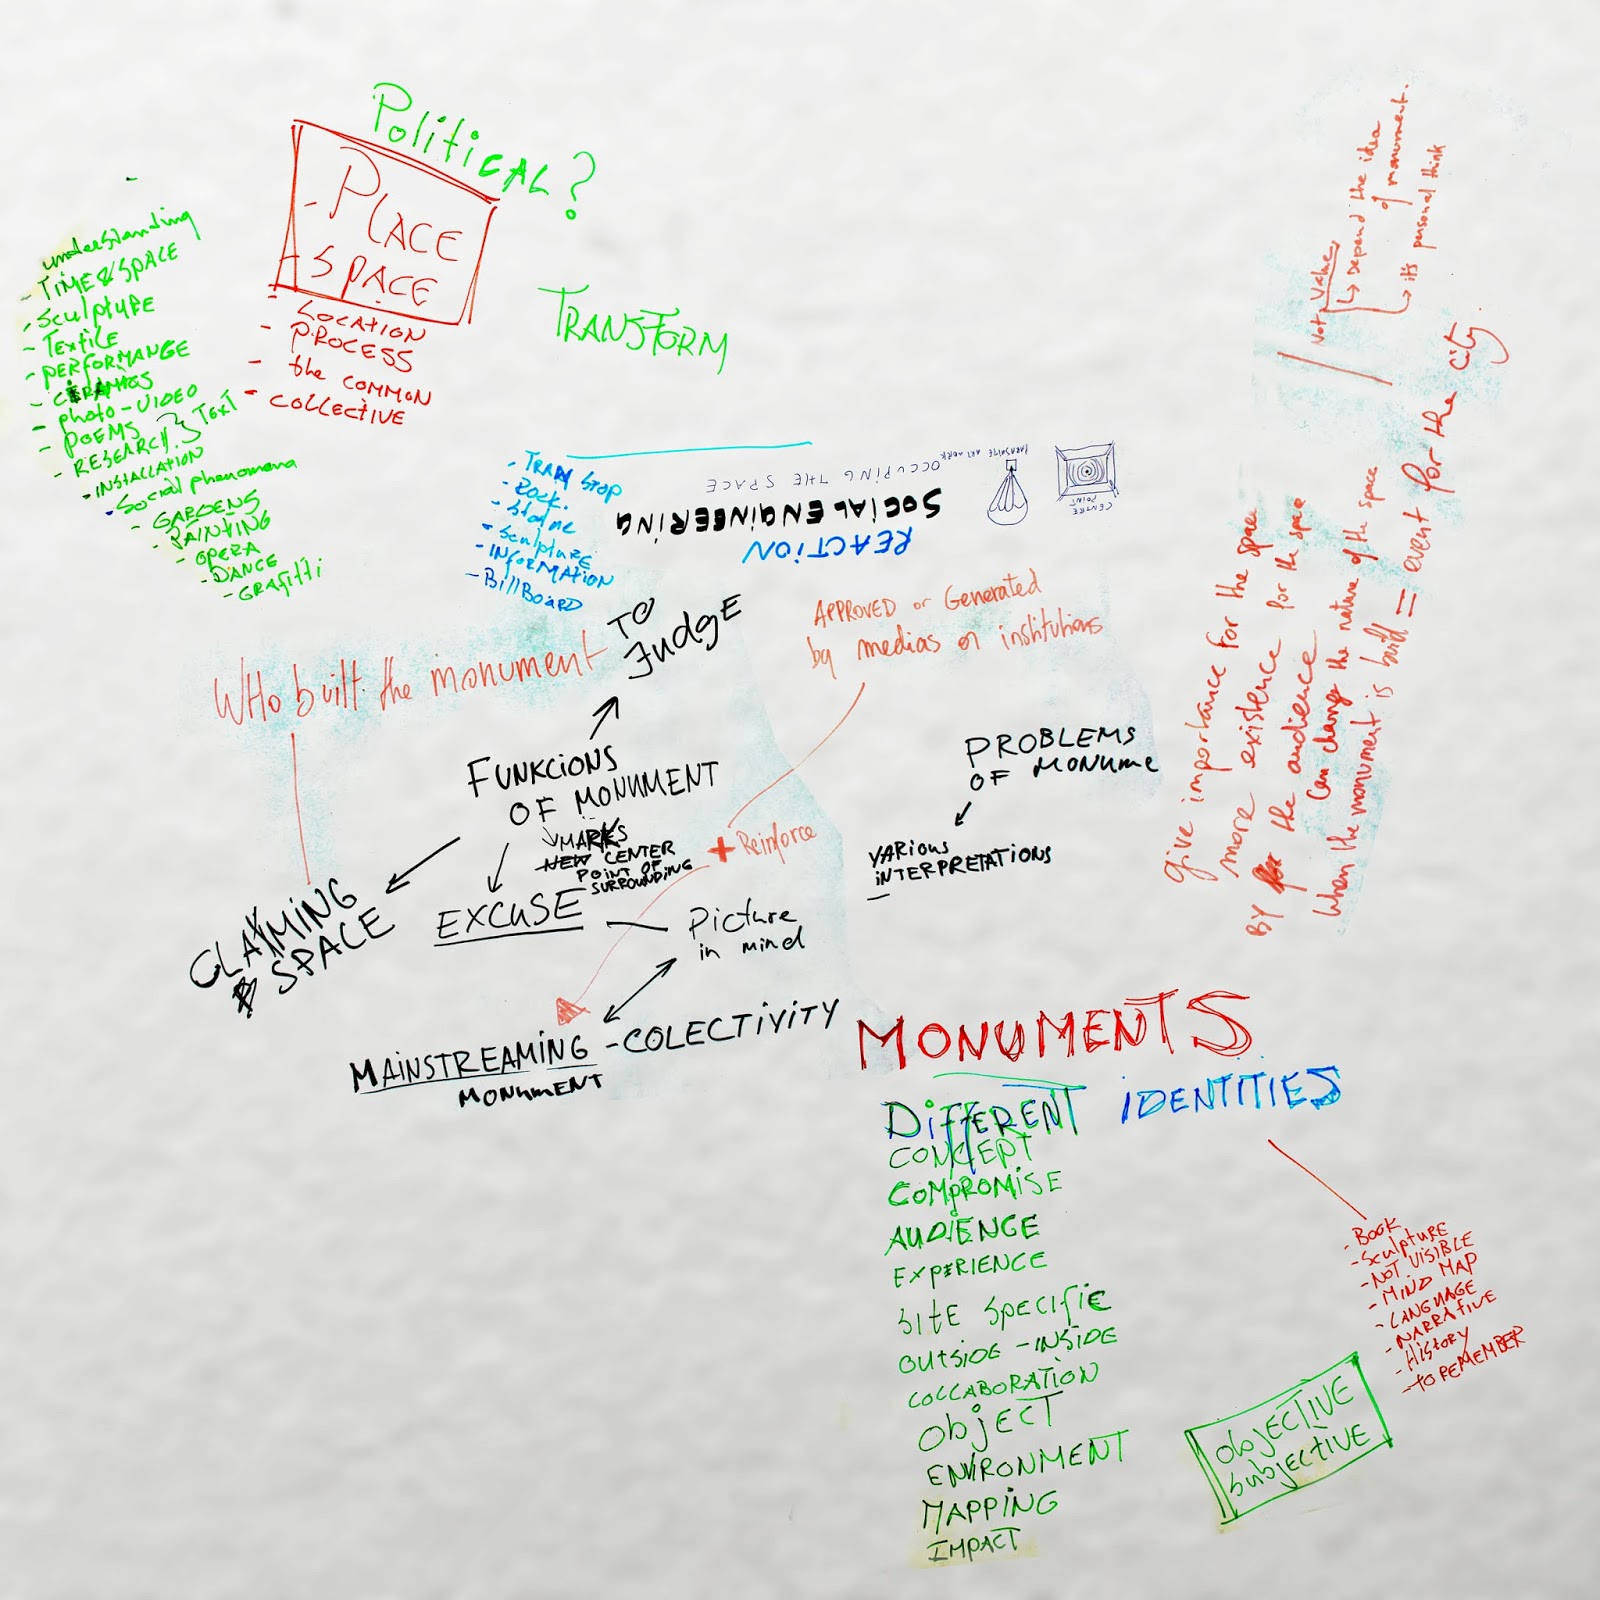 Political?
- PLACE
- SPACE
- LOCATION
- PROCESS
- the COMMON
- COLLECTIVE
TRANSFORM
understanding
- TIME & SPACE
- Sculpture
- TextiLE
- PERFORMANGE
- CERAMiCS
- photo - VIDEO
- POEMS
- RESEARCH } TEXT
- INSTALLATION
- Social phenomena
- GARDENS
- PAINTING
- OPERA
- DANCE
- GRAfitti
- TRAM STOP
- Rock.
- Statue
- Sculpture
- INFORMATION
- BillBoard
REACTION
SOCIAL ENGINEERING
OCCUPING THE SPACE
PARASHITE ART WORK
CENTRE
POINT
Not value
↳ Depend the idea
of monument.
↳ it's personal think
give importance for the space
more existence for the space
BY for the audience
Can change the nature of the space
When the monument is build = event for the city.
WHo built the monument
TO
Judge
APPROVED or Generated
by medias or institutions
FUNKCIONS
OF MONUMENT
MARKS
NEW CENTER
POINT OF
SURROUNDING
+ Reinforce
PROBLEMS
OF MONUME
VARious
iNTERPRETATIONS
CLAIMING
SPACE
EXCUSE
Picture
in mind
MAINSTREAMING - COLECTIVITY
MONUMENT
MONUMENTS
DiFFERENT iDENTITIES
CONCEPT
COMPROMISE
AUDIENCE
EXPERIENCE
SITE SPECIFIC
OUTSIDE - INSIDE
COLLABORATION
ObjECT
ENVIRONMENT
MAPPING
IMPACT
- BOOK
- Sculpture
- NOT VISIBLE
- MIND MAP
- LANGUAGE
- NARRATIVE
- History
- TO REMEMBER
ObjECTIVE
Subjective